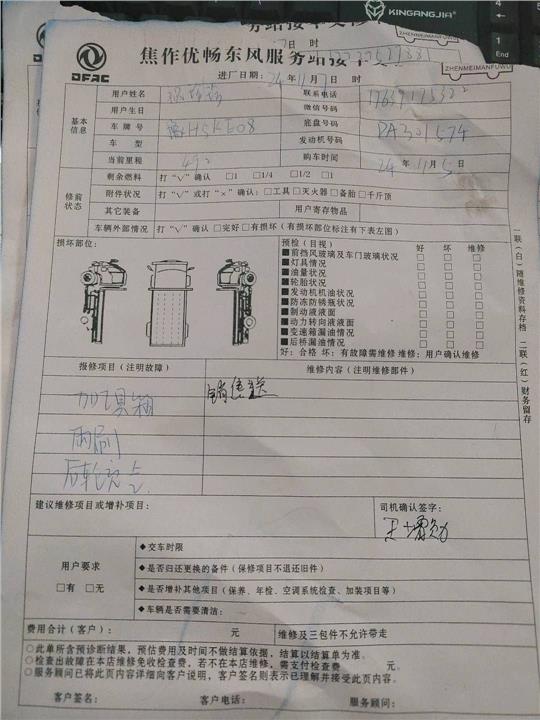 KINGANGJIA
焦作优畅东风服务站接车
ZHENMEIMANFUWU
1
End
ZHENMEIMANFUWU
DFAC
进厂日期：24年11月 日 时
用户姓名
联系电话
用户生日
微信号码
基本信息
车牌号
HSKE08
底盘号码
DA301574
车 型
发动机号码
当前里程
购车时间
24年11月5日
修前状态
剩余燃料 打“√”确认 □1 □1/4 □1/2 □1
附件状况 打“√”或打“×”确认：□工具 □灭火器 □备胎 □千斤顶
其它装备
用户寄存物品
车辆外部情况 打“√”确认 □完好 □有损坏（有损坏部位标注有下表左图）
损坏部位：
预检（目视） 好 坏 维修
■前挡风玻璃及车门玻璃状况 □ □ □
■灯具情况 □ □ □
■油量状况 □ □ □
■轮胎状况 □ □ □
■发动机机油状况 □ □ □
■防冻防锈瓶状况 □ □ □
■制动液液面 □ □ □
■动力转向液液面 □ □ □
■变速箱漏油情况 □ □ □
■后桥漏油情况 □ □ □
好：合格 坏：有故障需维修 维修：用户确认维修
一联（白）随维修资料存档 二联（红）财务留存
报修项目（注明故障）
维修内容（注明维修部件）
加工具箱
销售送
雨刷
后轮充气
建议维修项目或增补项目：
司机确认签字：
用户要求
□有 □无
◆交车时限
◆是否归还更换的备件（保修项目不退还旧件）
◆是否增补其他项目（保养、年检、空调系统检查、加装项目等）
◆车辆是否需要清洁：
费用合计（客户）： 元
维修及三包件不允许带走
○此单所含预诊断结果，预估费用及时间不做结算依据，结算以结算单为准。
○检查出故障在本店维修免收检查费，若不在本店维修，需支付检查费 元。
○服务顾问已将此页内容详细向客户说明，客户签名则表示已理解并接受此页内容。
客户签名： 客户电话： 服务顾问：